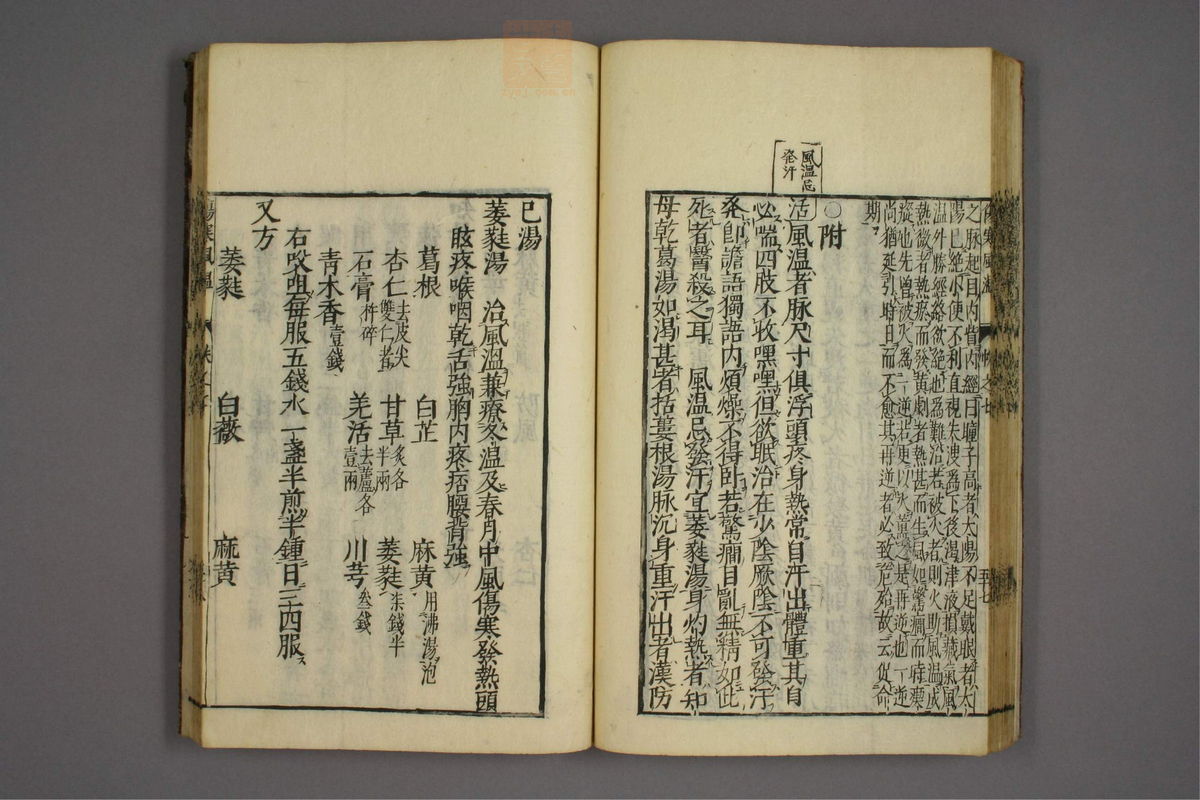 風溫忌
發汗
之脉起目内眥内經曰瞳子高者太陽不足戴眼者太
陽已絶小便不利直視失溲爲下後渇津液損藏氣風
溫外勝經絡欲絶也爲難治若被火者則火助風溫成
熱微者熱瘀而發黄劇者熱甚而生風如驚癎而時瘛
瘲也先曾被火爲一逆若更以火熏之是再逆也一逆
尚猶延引時日而不愈其再逆者必致危殆故云促命
期
○附
活風溫者脉尺寸俱浮頭疼身熱常自汗出體重其息
必喘四肢不收嘿嘿但欲眠治在少陰厥陰不可發汗
発即譫語獨語内煩燥不得卧若驚癎目亂無精如此
死者醫殺之耳 風溫忌發汗宜萎蕤湯身灼熱者知
母乾葛湯如渇甚者括蔞根湯脉沉身重汗出者漢防
巳湯
萎蕤湯 治風溫兼療冬溫及春月中風傷寒發熱頭
眩疼喉咽乾舌強胸内疼痞腰背強
葛根 白芷 麻黄用沸湯泡
杏仁去皮尖雙仁者 甘草炙各半兩 萎蕤柒錢半
石膏杵碎 羌活去蘆各壹兩 川芎叁錢
青木香壹錢
右㕮咀每服五錢水一盞半煎半鍾日三四服
又方
萎蕤 白薇 麻黄